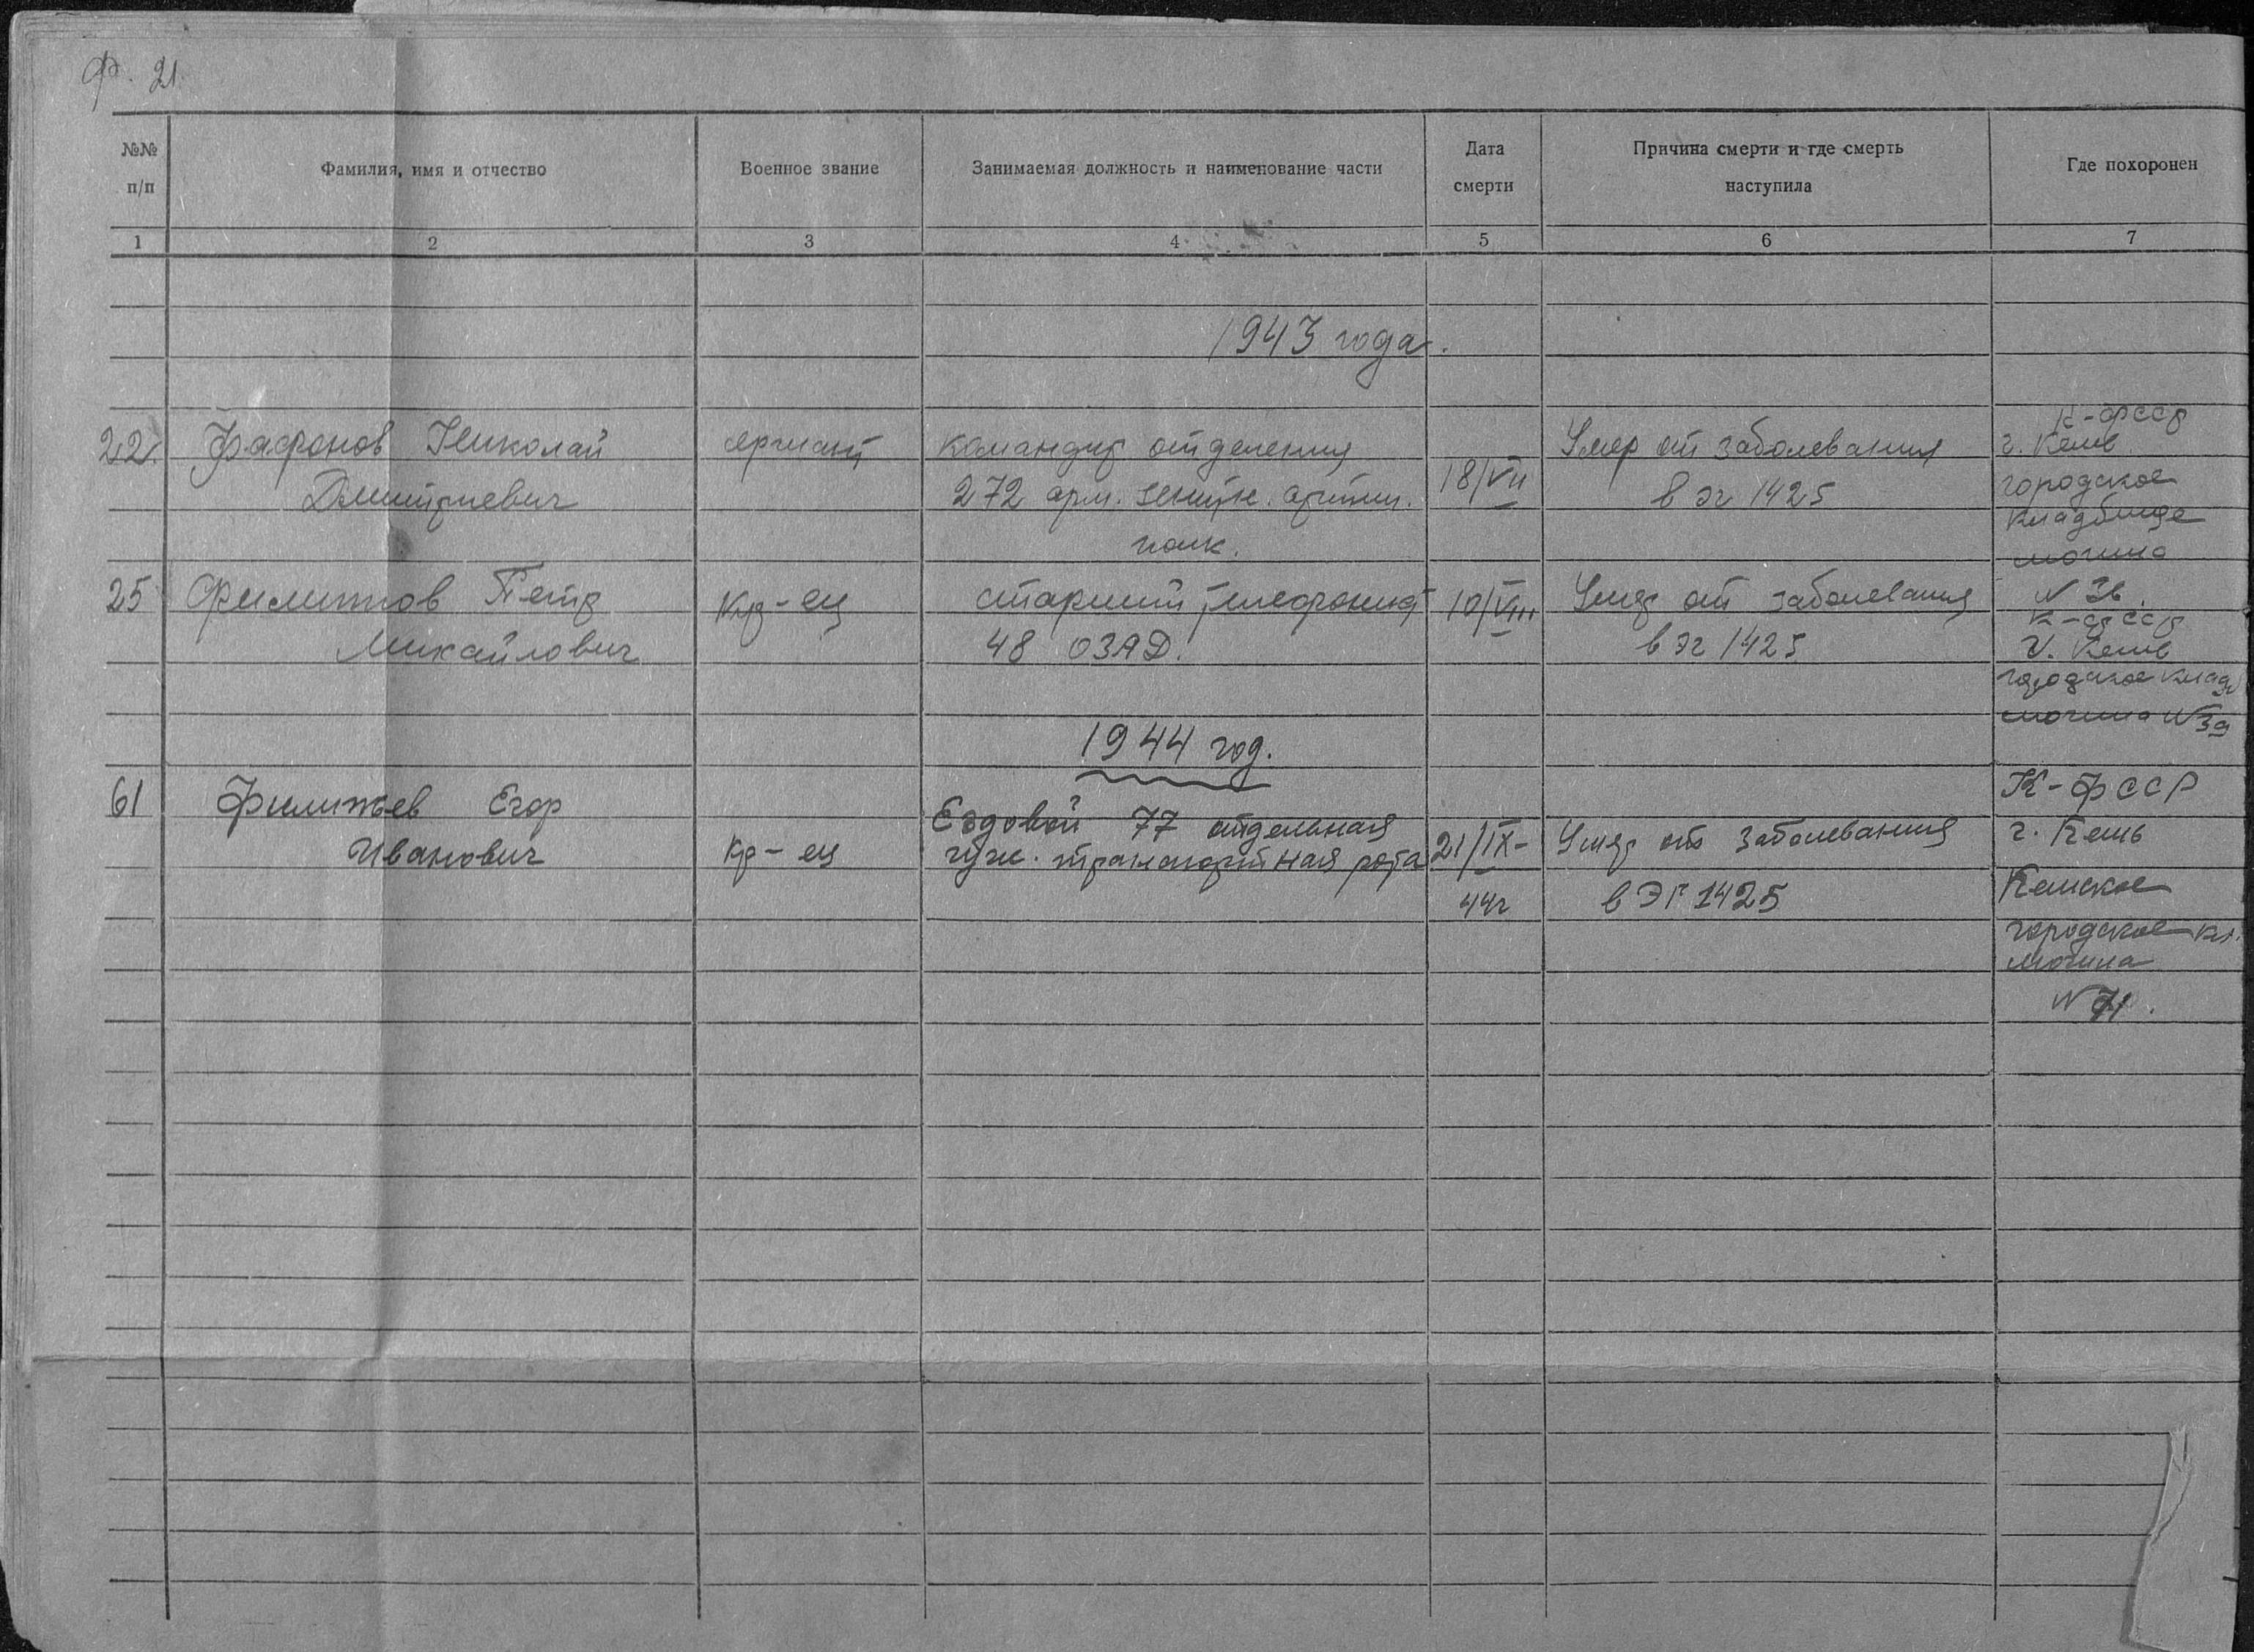 Ф. 21.
№№ п/п
Фамилия, имя и отчество
Военное звание
Занимаемая должность и наименование части
Дата смерти
Причина смерти и где смерть наступила
Где похоронен
1 2 3 4 5 6 7
1943 года.
22. Фафонов Николай
Дмитриевич
сержант
командир отделения
272 арм. зенитн. артил.
полк.
18/VII
Умер от заболевания
в эг 1425
К-фсср
г. Кемь
городское
кладбище
могила
N 36.
25 Филиппов Петр
Михайлович
кр-ец
старший телефонист
48 ОЗАД.
10/VIII
Умер от заболевания
в эг 1425
К-фсср
г. Кемь
городское клад
могила N 39
1944 год.
61 Филипьев Егор
Иванович
кр-ец
Ездовой 77 отдельная
гуж. транспортная рота
21/IX-
44г
Умер от заболевания
в ЭГ 1425
К-ФССР
г. Кемь
Кемское
городское кл.
могила
N 71.